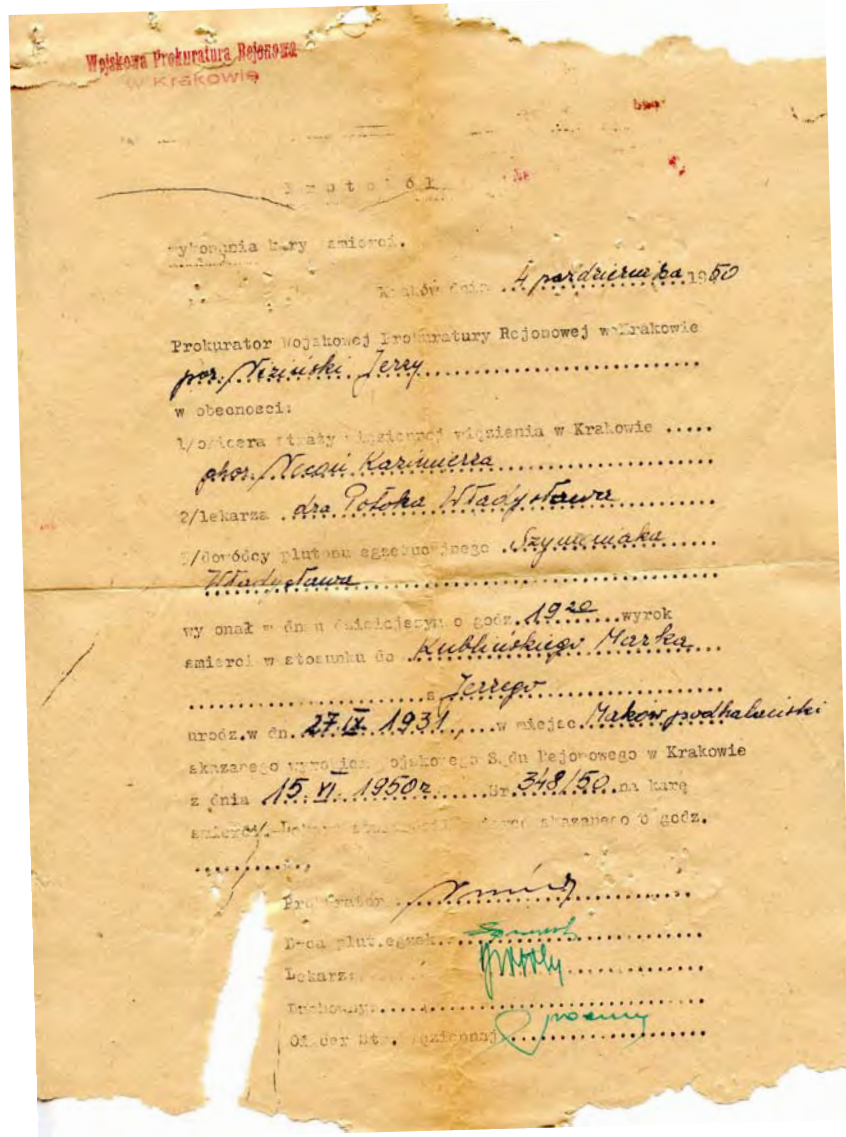 Wojskowa Prokuratura Rejonowa
w Krakowie
Protokół
wykonania kary smierci.
Kraków dnia 4 października 1950
Prokurator Wojskowej Prokuratury Rejonowej w Krakowie
por. Jerzy
w obecnosci:
1/oficera straży więziennej więzienia w Krakowie .....
Kazimierza
2/lekarza dra Potoka Władysława
3/dowódcy plutonu egzekucyjnego Szymaniaka
Władysława
wykonał w dniu dzisiejszym o godz. 19 20 wyrok
smierci w stosunku do Kublińskiego Marka
s Jerzego
urodz.w dn. 27 IX 1931 w miejsc. Maków podhalański
skazanego wyrokiem Wojskowego Sądu Rejonowego w Krakowie
z dnia 15. VI. 1950r Sr. 348/50 na karę
smierci. Lekarz skazanego o godz.
Prokurator
D-ca plut.egzek.
Lekarz:
Duchowny:
Oficer Str. Więziennej